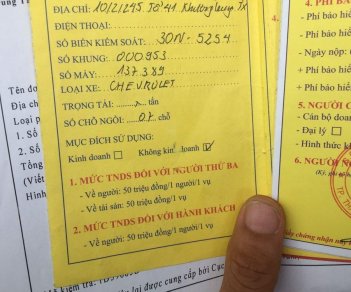 ĐỊA CHỈ: 10/21245 Tổ 41 Khương Trung. TX
ĐIỆN THOẠI:
SỐ BIỂN KIỂM SOÁT: 30N - 5254
SỐ KHUNG: 000953
SỐ MÁY: 137389
LOẠI XE: CHEVROLET
TRỌNG TẢI: tấn
SỐ CHỖ NGỒI: 07 chỗ
MỤC ĐÍCH SỬ DỤNG:
Kinh doanh Không kinh doanh
1. MỨC TNDS ĐỐI VỚI NGƯỜI THỨ BA
- Về người: 50 triệu đồng/1 người/1 vụ
- Về tài sản: 50 triệu đồng/1 vụ
2. MỨC TNDS ĐỐI VỚI HÀNH KHÁCH
- Về người: 50 triệu đồng/1 người/1 vụ
4. PHÍ BẢO
- Phí bảo hiể
+ Phí bảo hiể
- Ngày nộp:
+ Phí bảo hiể
+ Phí bảo hiể
5. NGƯỜI C
- Cán bộ doa
- Đại lý
- Hình thức k
6. NGƯỜI
Tên do
Địa ch
Loại p
1. Số
2. Số
Tổng
(Viết
Hình
ấy chứng nhận này
lại được cung cấp bởi Cục